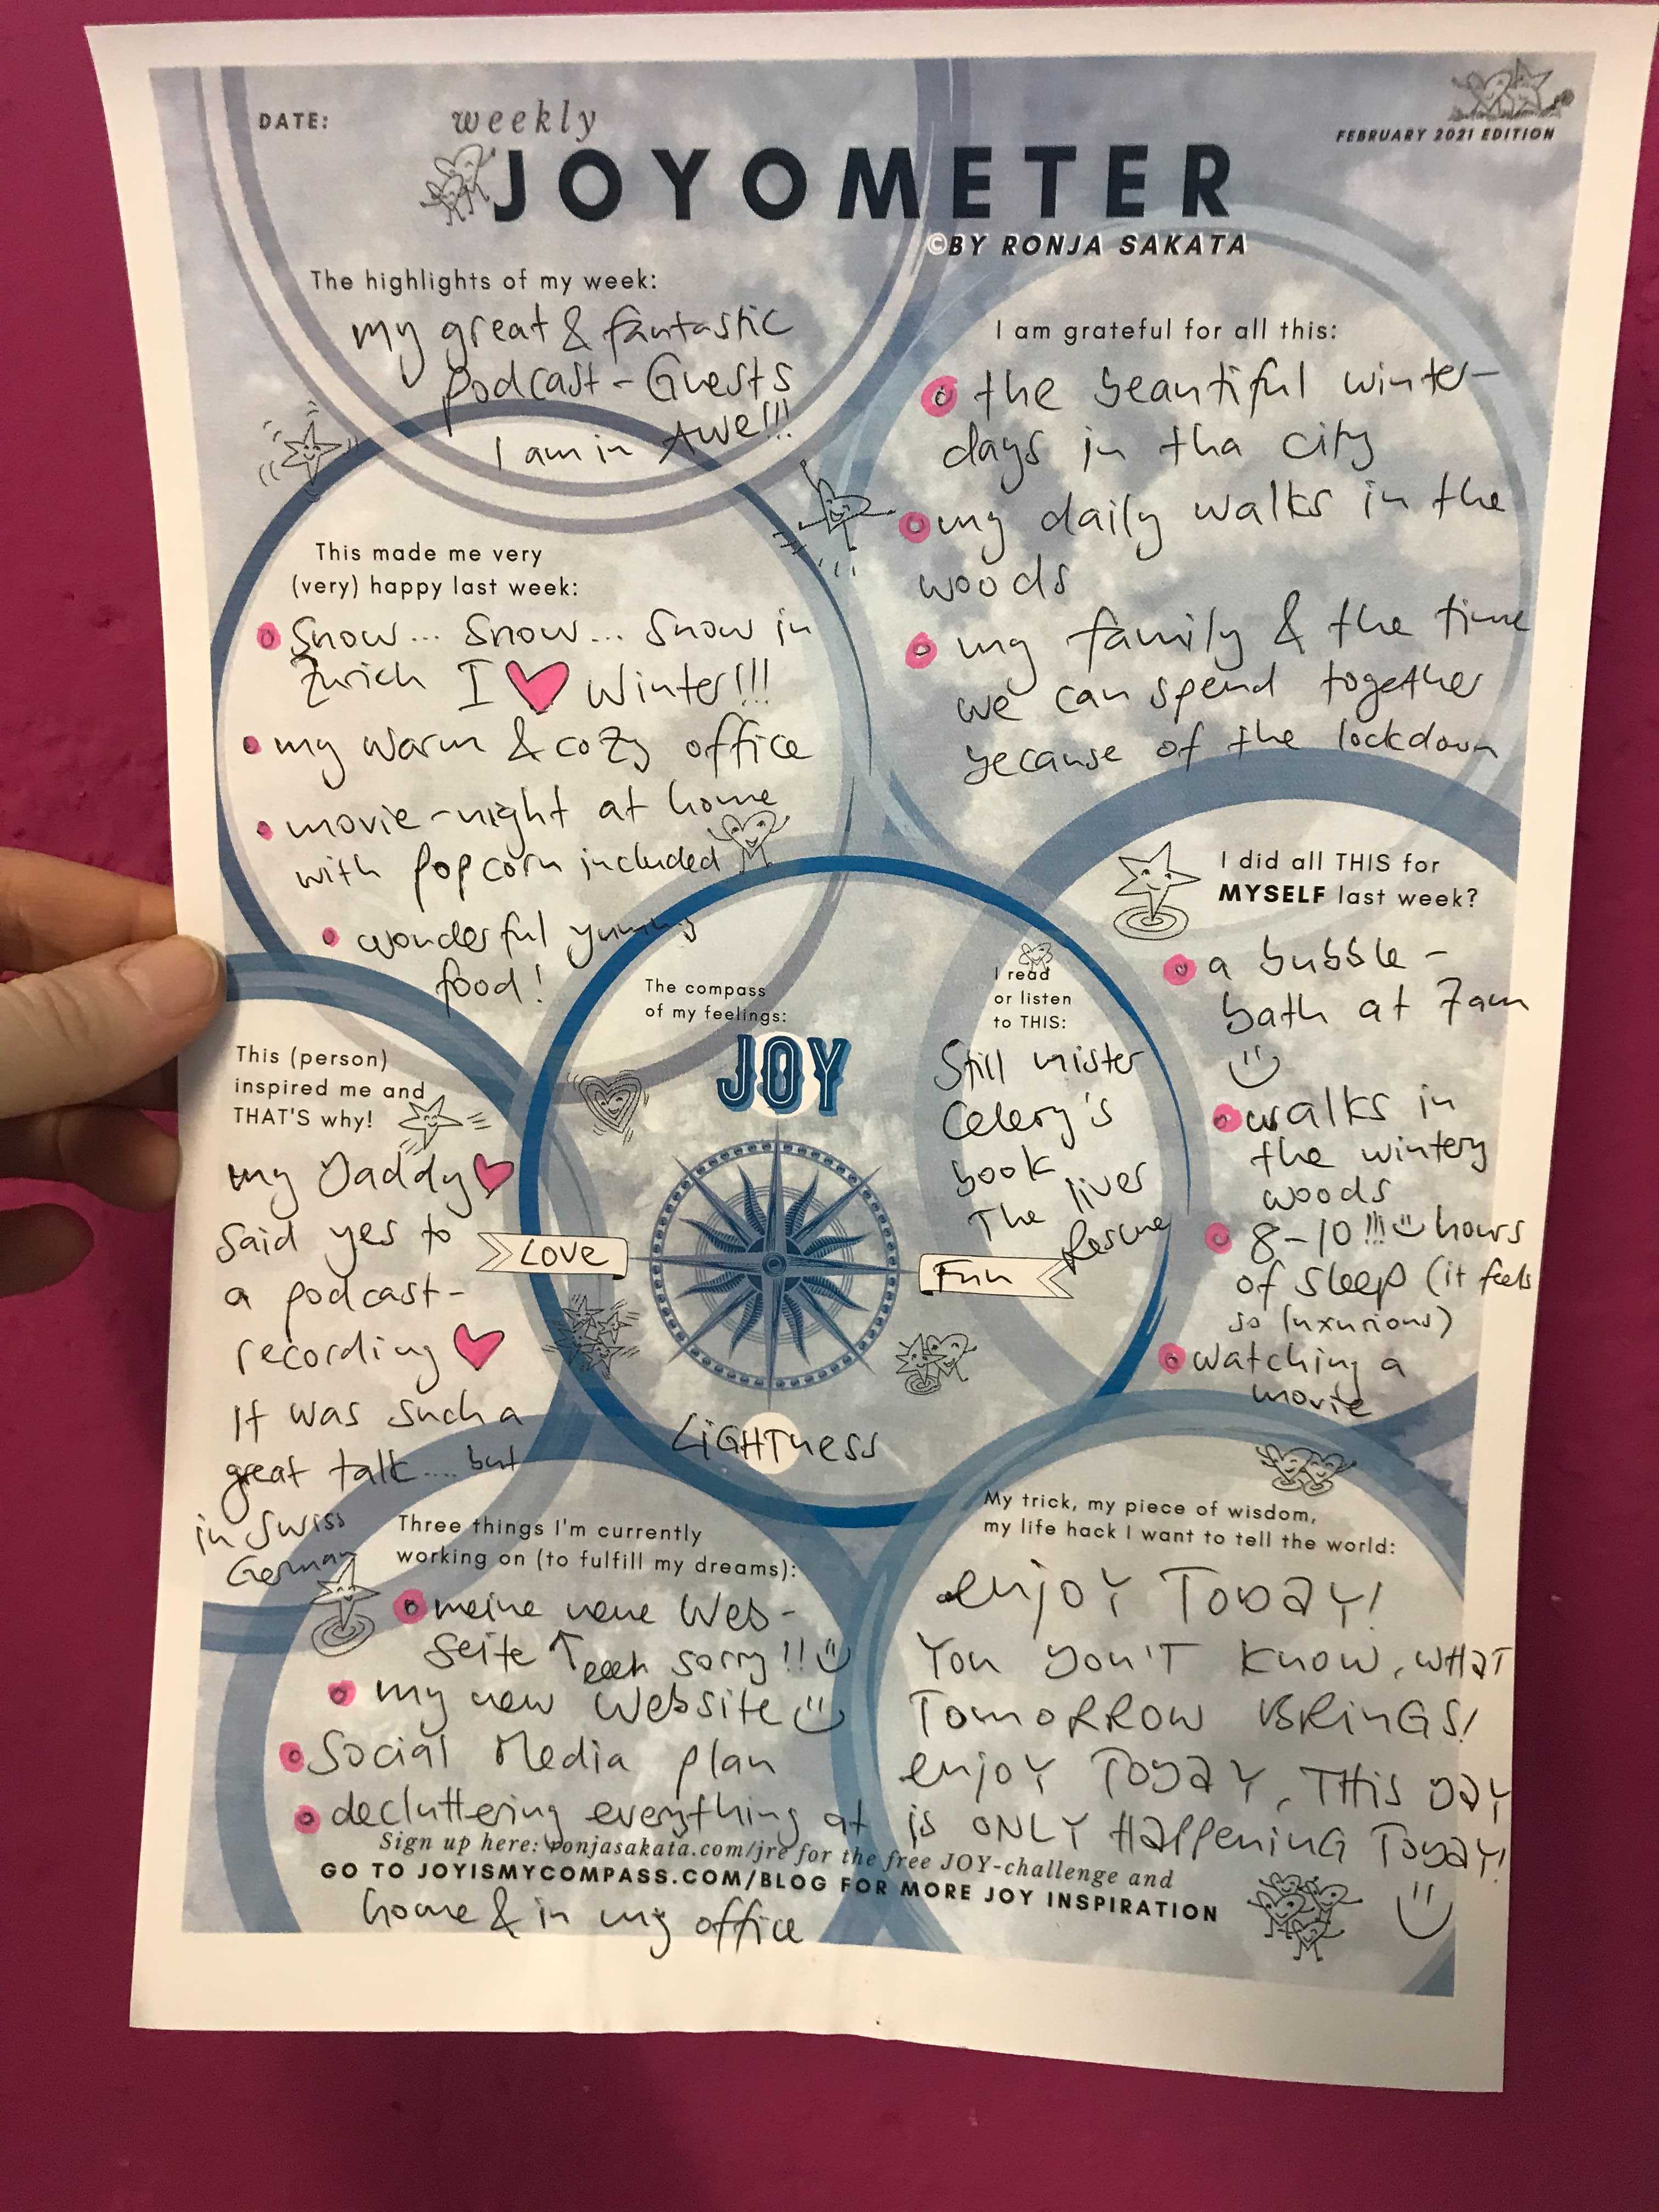 DATE:
weekly
FEBRUARY 2021 EDITION
JOYOMETER
©BY RONJA SAKATA
The highlights of my week:
my great & fantastic
podcast-Guests
I am in AWe!!!
I am grateful for all this:
the beautiful winter-
days in tha city
my daily walks in the
woods
my family & the time
we can spend together
because of the lockdown
This made me very
(very) happy last week:
Snow... Snow... Snow in
Zurich I ♥ Winter!!!
my warm & cozy office
movie-night at home
with popcorn included
wonderful yummy
food!
I did all THIS for
MYSELF last week?
a bubble-
bath at 7am
walks in
the wintery
woods
8-10!!! hours
of sleep (it feels
so luxurious)
watching a
movie
The compass
of my feelings:
JOY
LOVE
Fun
LiGHTness
I read
or listen
to THIS:
Still mister
Celery's
book
The liver
Rescue
This (person)
inspired me and
THAT'S why!
my Daddy ♥
Said yes to
a podcast-
recording ♥
It was such a
great talk.... but
in Swiss
German
Three things I'm currently
working on (to fulfill my dreams):
meine neue Web-
seite ↑ eeeh sorry!!
my new Website
Social Media plan
decluttering everything at
home & in my office
My trick, my piece of wisdom,
my life hack I want to tell the world:
enjoY ToDaY!
You Don'T Know, wHaT
TomoRRow BRinGS!
enjoY ToDaY, THis DaY
is ONLY HaPPeninG ToDaY!
Sign up here: ronjasakata.com/jre for the free JOY-challenge and
GO TO JOYISMYCOMPASS.COM/BLOG FOR MORE JOY INSPIRATION